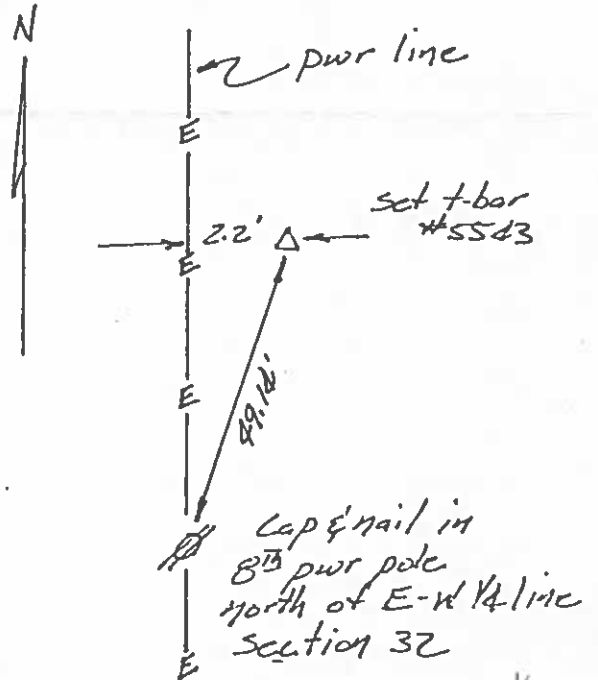 N
pwr line
E
set t-bar
2.2'
#5543
E
E
49.14'
Cap & nail in
8th pwr pole
north of E-W 1/4 line
Section 32
E